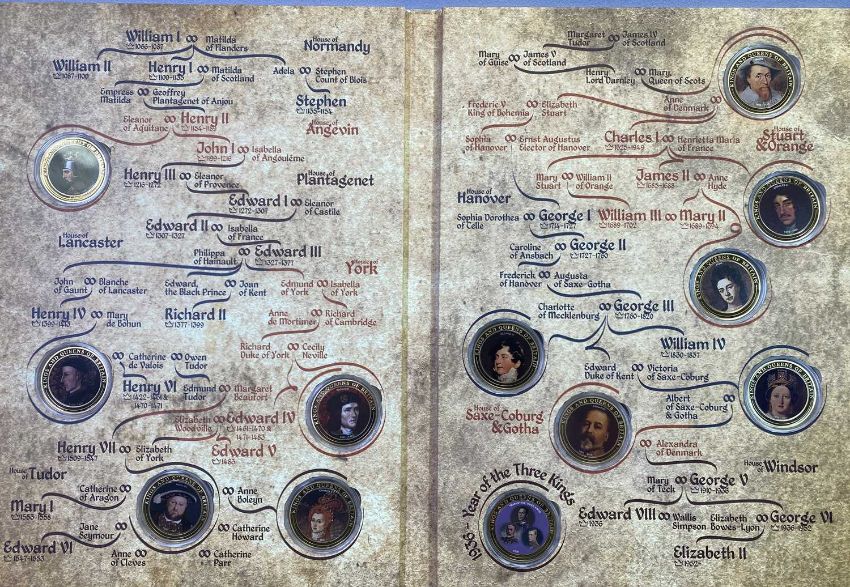 William I ∞ Matilda
1066-1087 of Flanders
House of
Normandy
William II
1087-1100
Henry I ∞ Matilda
1100-1135 of Scotland
Adela ∞ Stephen
Count of Blois
Empress ∞ Geoffrey
Matilda Plantagenet of Anjou
Stephen
1135-1154
Eleanor ∞ Henry II
of Aquitaine 1154-1189
House of
Angevin
John I ∞ Isabella
1199-1216 of Angoulême
Henry III ∞ Eleanor
1216-1272 of Provence
House of
Plantagenet
Edward I ∞ Eleanor
1272-1307 of Castile
Edward II ∞ Isabella
1307-1327 of France
House of
Lancaster
Philippa ∞ Edward III
of Hainault 1327-1377
House of
York
John ∞ Blanche
of Gaunt of Lancaster
Edward, ∞ Joan
the Black Prince of Kent
Edmund ∞ Isabella
of York of York
Henry IV ∞ Mary
1399-1413 de Bohun
Richard II
1377-1399
Anne ∞ Richard
de Mortimer of Cambridge
∞ Catherine ∞ Owen
de Valois Tudor
Richard ∞ Cecily
Duke of York Neville
Henry VI
1422-1461 &
1470-1471
Edmund ∞ Margaret
Tudor Beaufort
Elizabeth ∞ Edward IV
Woodville 1461-1470 &
1471-1483
Henry VII ∞ Elizabeth
1509-1547 of York
Edward V
1483
House of
Tudor
Catherine ∞
of Aragon
∞ Anne
Boleyn
Mary I
1553-1558
Jane ∞
Seymour
∞ Catherine
Howard
Edward VI
1547-1553
Anne ∞
of Cleves
∞ Catherine
Parr
Margaret ∞ James IV
Tudor of Scotland
Mary ∞ James V
of Guise of Scotland
Henry ∞ Mary,
Lord Darnley Queen of Scots
Anne ∞
of Denmark
Frederic V ∞ Elizabeth
King of Bohemia Stuart
Sophia ∞ Ernst Augustus
of Hanover Elector of Hanover
Charles I ∞ Henrietta Maria
1625-1649 of France
House of
Stuart
& Orange
Mary ∞ William II
Stuart of Orange
James II ∞ Anne
1685-1688 Hyde
House of
Hanover
Sophia Dorothea ∞ George I
of Celle 1714-1727
William III ∞ Mary II
1689-1702 1689-1694
Caroline ∞ George II
of Ansbach 1727-1760
Frederick ∞ Augusta
of Hanover of Saxe-Gotha
Charlotte ∞ George III
of Mecklenburg 1760-1820
William IV
1830-1837
Edward ∞ Victoria
Duke of Kent of Saxe-Coburg
Albert ∞
of Saxe-Coburg
& Gotha
House of
Saxe-Coburg
& Gotha
∞ Alexandra
of Denmark
House of
Windsor
Mary ∞ George V
of Teck 1910-1936
1936 - Year of the Three Kings
Edward VIII ∞ Wallis
1936 Simpson
Elizabeth ∞ George VI
Bowes-Lyon 1936-1952
Elizabeth II
1952-
KINGS AND QUEENS OF BRITAIN